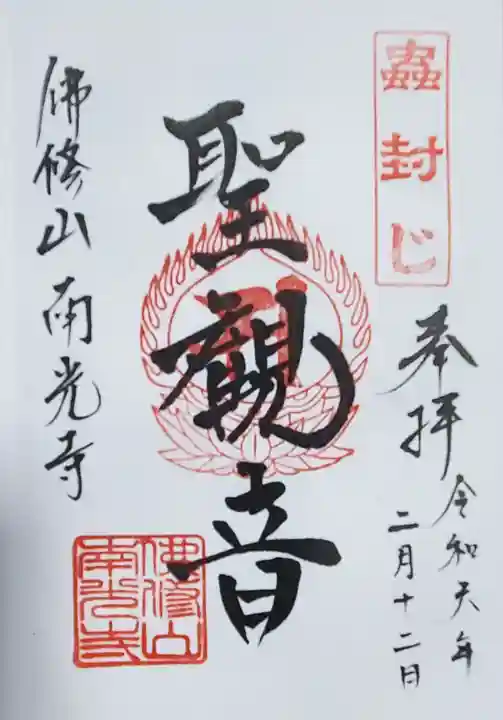 蟲封じ
奉拝
令和 年
二月十二日
聖観音
佛修山 南光寺
佛修山
南光寺